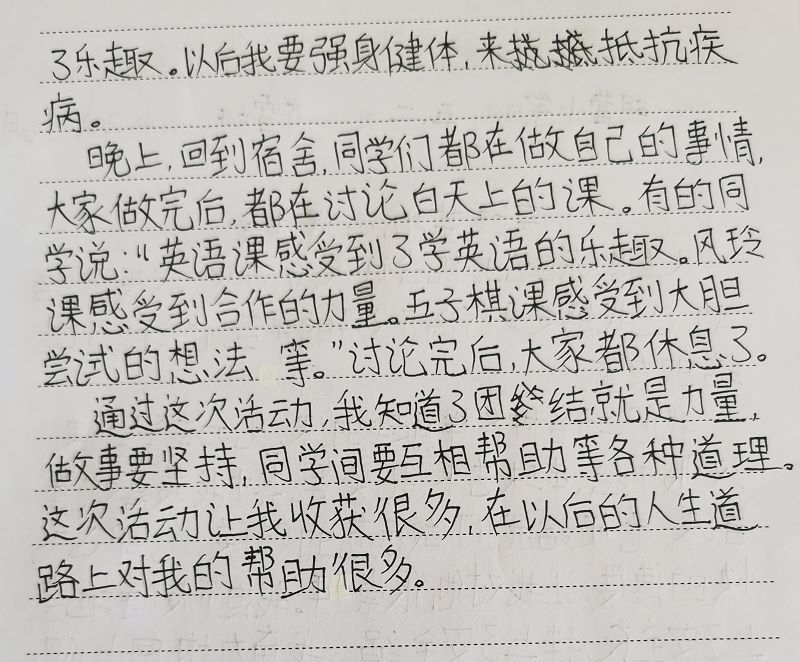 了乐趣。以后我要强身健体，来抵抗疾
病。
晚上，回到宿舍，同学们都在做自己的事情，
大家做完后，都在讨论白天上的课。有的同
学说：“英语课感受到了学英语的乐趣。风玲
课感受到合作的力量。五子棋课感受到大胆
尝试的想法 等。”讨论完后，大家都休息了。
通过这次活动，我知道了团结就是力量，
做事要坚持，同学间要互相帮助等各种道理。
这次活动让我收获很多，在以后的人生道
路上对我的帮助很多。